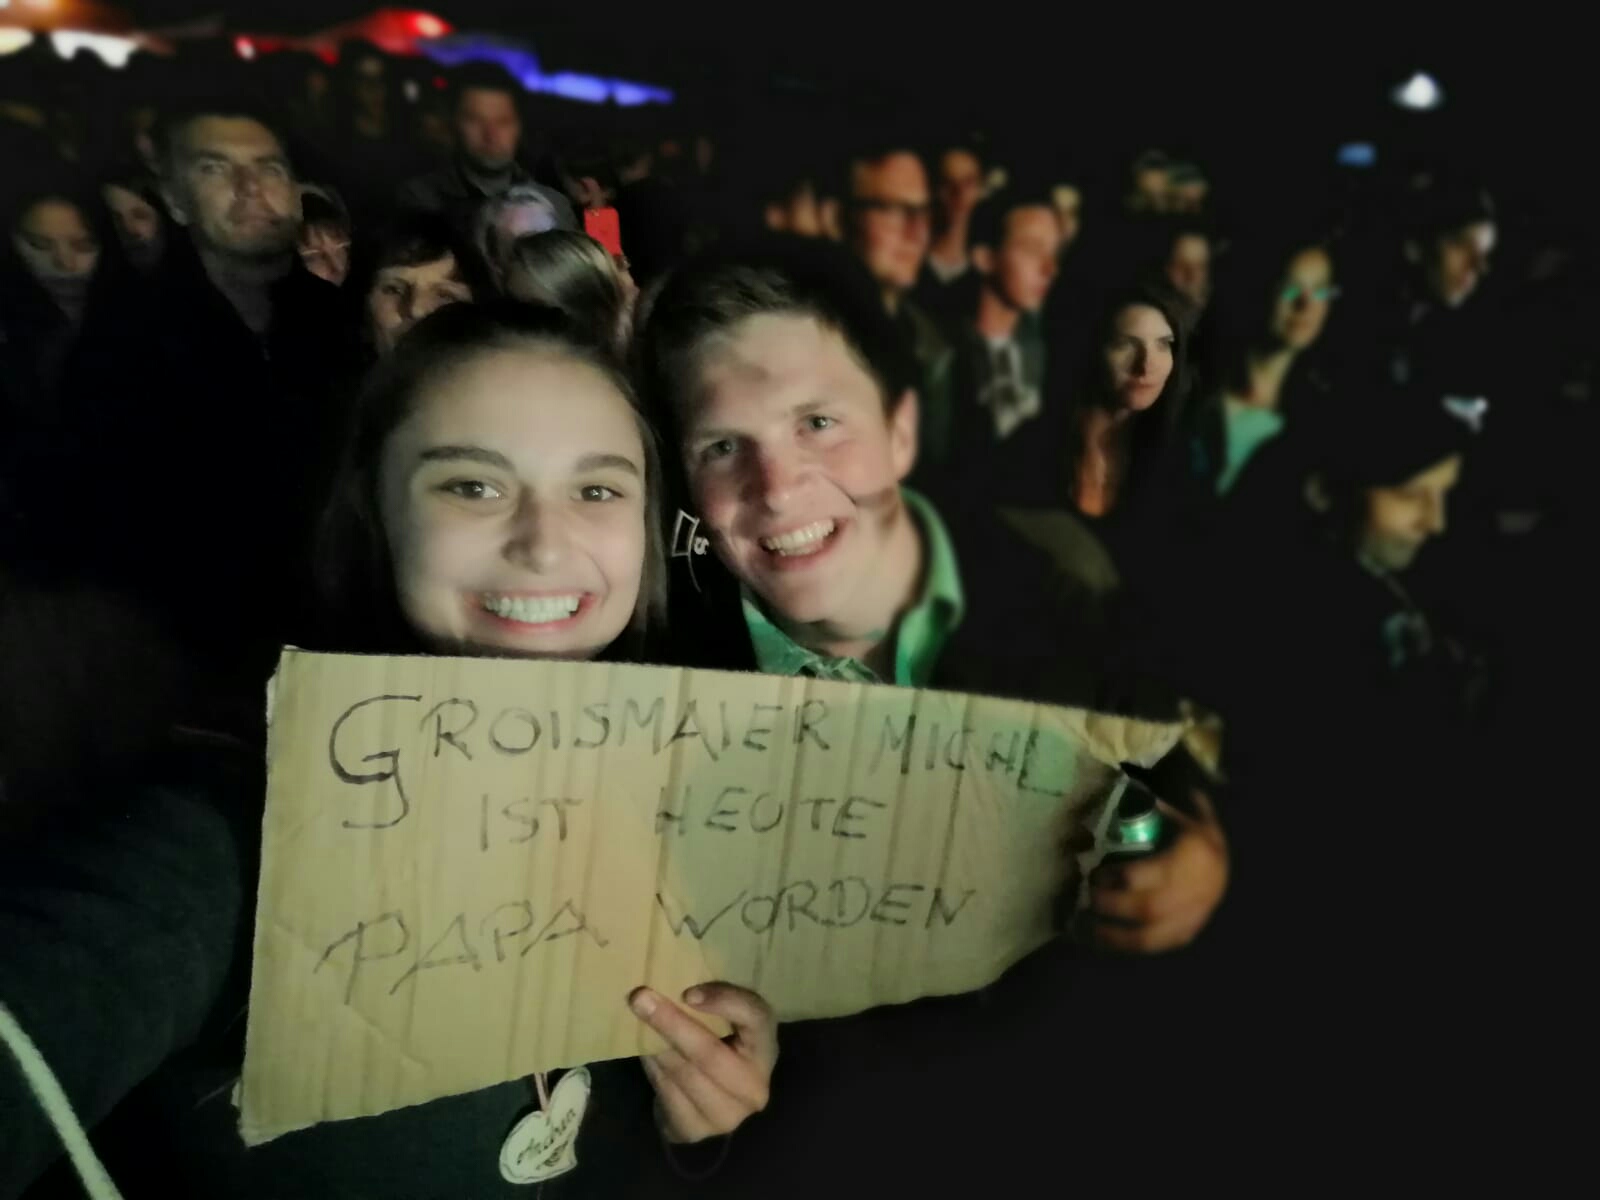 GROISMAIER MICHL
IST HEUTE
PAPA WORDEN
Andrea